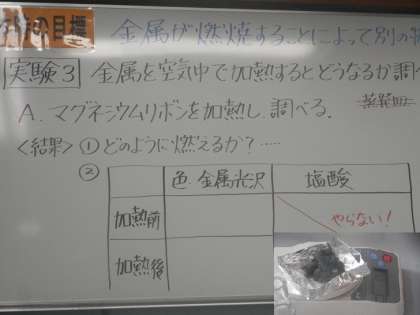 の目標
金属が燃焼することによって別の物
実験3 金属を空気中で加熱するとどうなるか調べる.
A. マグネシウムリボンを加熱し、調べる.
<結果> ① どのように燃えるか?……
②
色・金属光沢 塩酸
加熱前 やらない!
加熱後